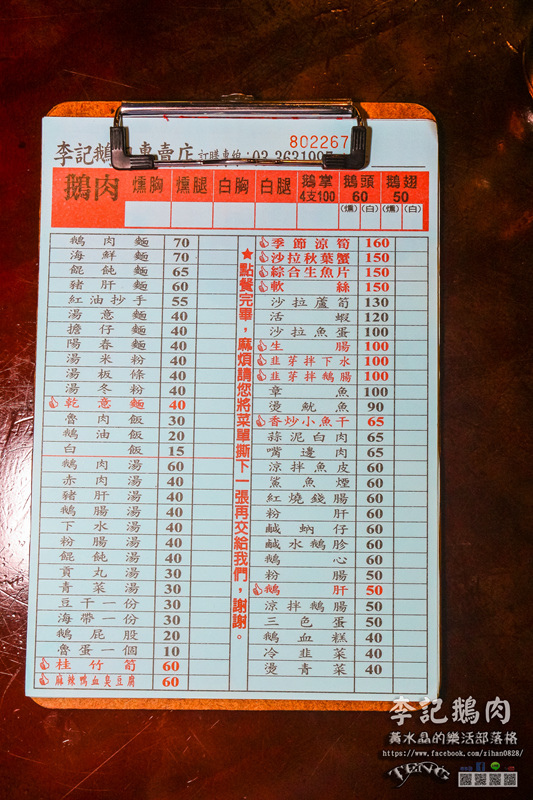 802267
李記鵝肉專賣店 訂購專線:02
鵝肉 燻胸 燻腿 白胸 白腿 鵝掌 4支100 鵝頭 60 鵝翅 50
(燻) (白) (燻) (白)
鵝肉麵 70
海鮮麵 70
餛飩麵 65
豬肝麵 60
紅油抄手 55
湯意麵 40
擔仔麵 40
陽春麵 40
湯米粉 40
湯板條 40
湯冬粉 40
乾意麵 40
魯肉飯 30
鵝油飯 20
白飯 15
鵝肉湯 60
赤肉湯 40
豬肝湯 40
鵝腸湯 40
下水湯 40
粉腸湯 40
餛飩湯 40
貢丸湯 30
青菜湯 30
豆干一份 30
海帶一份 30
鵝屁股 20
魯蛋一個 10
桂竹筍 60
麻辣鴨血臭豆腐 60
★點餐完畢,麻煩請您將菜單撕下一張再交給我們,謝謝。
季節涼筍 160
沙拉秋葉蟹 150
綜合生魚片 150
軟絲 150
沙拉蘆筍 130
活蝦 120
沙拉魚蛋 100
生腸 100
韭芽拌下水 100
韭芽拌鵝腸 100
章魚 100
燙魷魚 90
香炒小魚干 65
蒜泥白肉 65
嘴邊肉 65
涼拌魚皮 60
鯊魚煙 60
紅燒錢腸 60
粉肝 60
鹹蚋仔 60
鹹水鵝胗 60
鵝心 60
粉腸 50
鵝肝 50
涼拌鵝腸 50
三色蛋 50
鵝血糕 40
冷韭菜 40
燙青菜 40
李記鵝肉
黃水晶的樂活部落格
https://www.facebook.com/rihan0828/
TENG